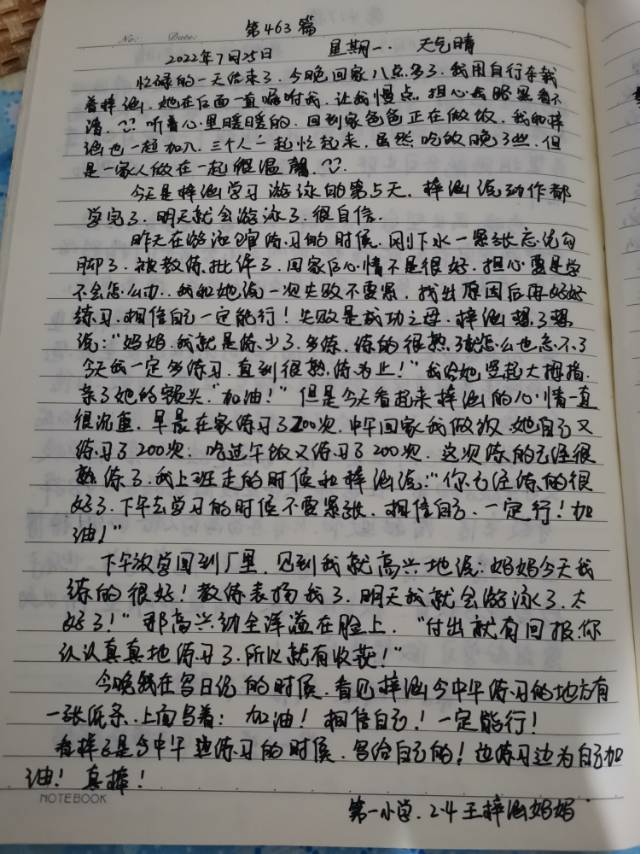 第463篇
No: Date:
2022年7月25日 星期一. 天气晴
忙碌的一天结束了. 今晚回家八点多了. 我用自行车载
着梓涵. 她在后面一直嘱咐我. 让我慢点. 担心我眼黑看不
清. 听着心里暖暖的. 回到家爸爸正在做饭. 我和梓
涵也一起加入. 三个人一起忙起来. 虽然吃的晚了些. 但
是一家人做在一起很温馨.
今天是梓涵学习游泳的第5天. 梓涵说动作都
学完了. 明天就会游泳了. 很自信.
昨天在游泳馆练习的时候. 刚下水一紧张忘说勾
脚了. 被教练批评了. 回家后心情不是很好. 担心要是学
不会怎么办. 我和她说一次失败不要紧. 找出原因后再好好
练习. 相信自己一定能行! 失败是成功之母. 梓涵想了想
说:"妈妈. 我就是练少了. 多练. 练的很熟了就怎么也忘不了
今天我一定多练习. 直到很熟练为止!" 我给她竖起大拇指.
亲了她的额头. "加油!" 但是今天看起来梓涵的心情一直
很沉重. 早晨在家练习了200次. 中午回家我做饭. 她自己又
练习了200次. 吃过午饭又练习了200次. 这次练的已经很
熟练了. 我上班走的时候和梓涵说:"你已经练的很
好了. 下午去学习的时候不要紧张. 相信自己. 一定行! 加
油!"
下午放学回到厂里. 见到我就高兴地说: 妈妈今天我
练的很好! 教练表扬我了. 明天我就会游泳了. 太
好了!" 那高兴劲全洋溢在脸上. "付出就有回报. 你
认认真真地练习了. 所以就有收获!"
今晚我在写日记的时候. 看见梓涵今中午练习的地方有
一张纸条. 上面写着: 加油! 相信自己! 一定能行!
是今中午边练习的时候. 写给自己的! 边练习边为自己加
油! 真棒!
NOTEBOOK
第一小学. 2.4 王梓涵妈妈.